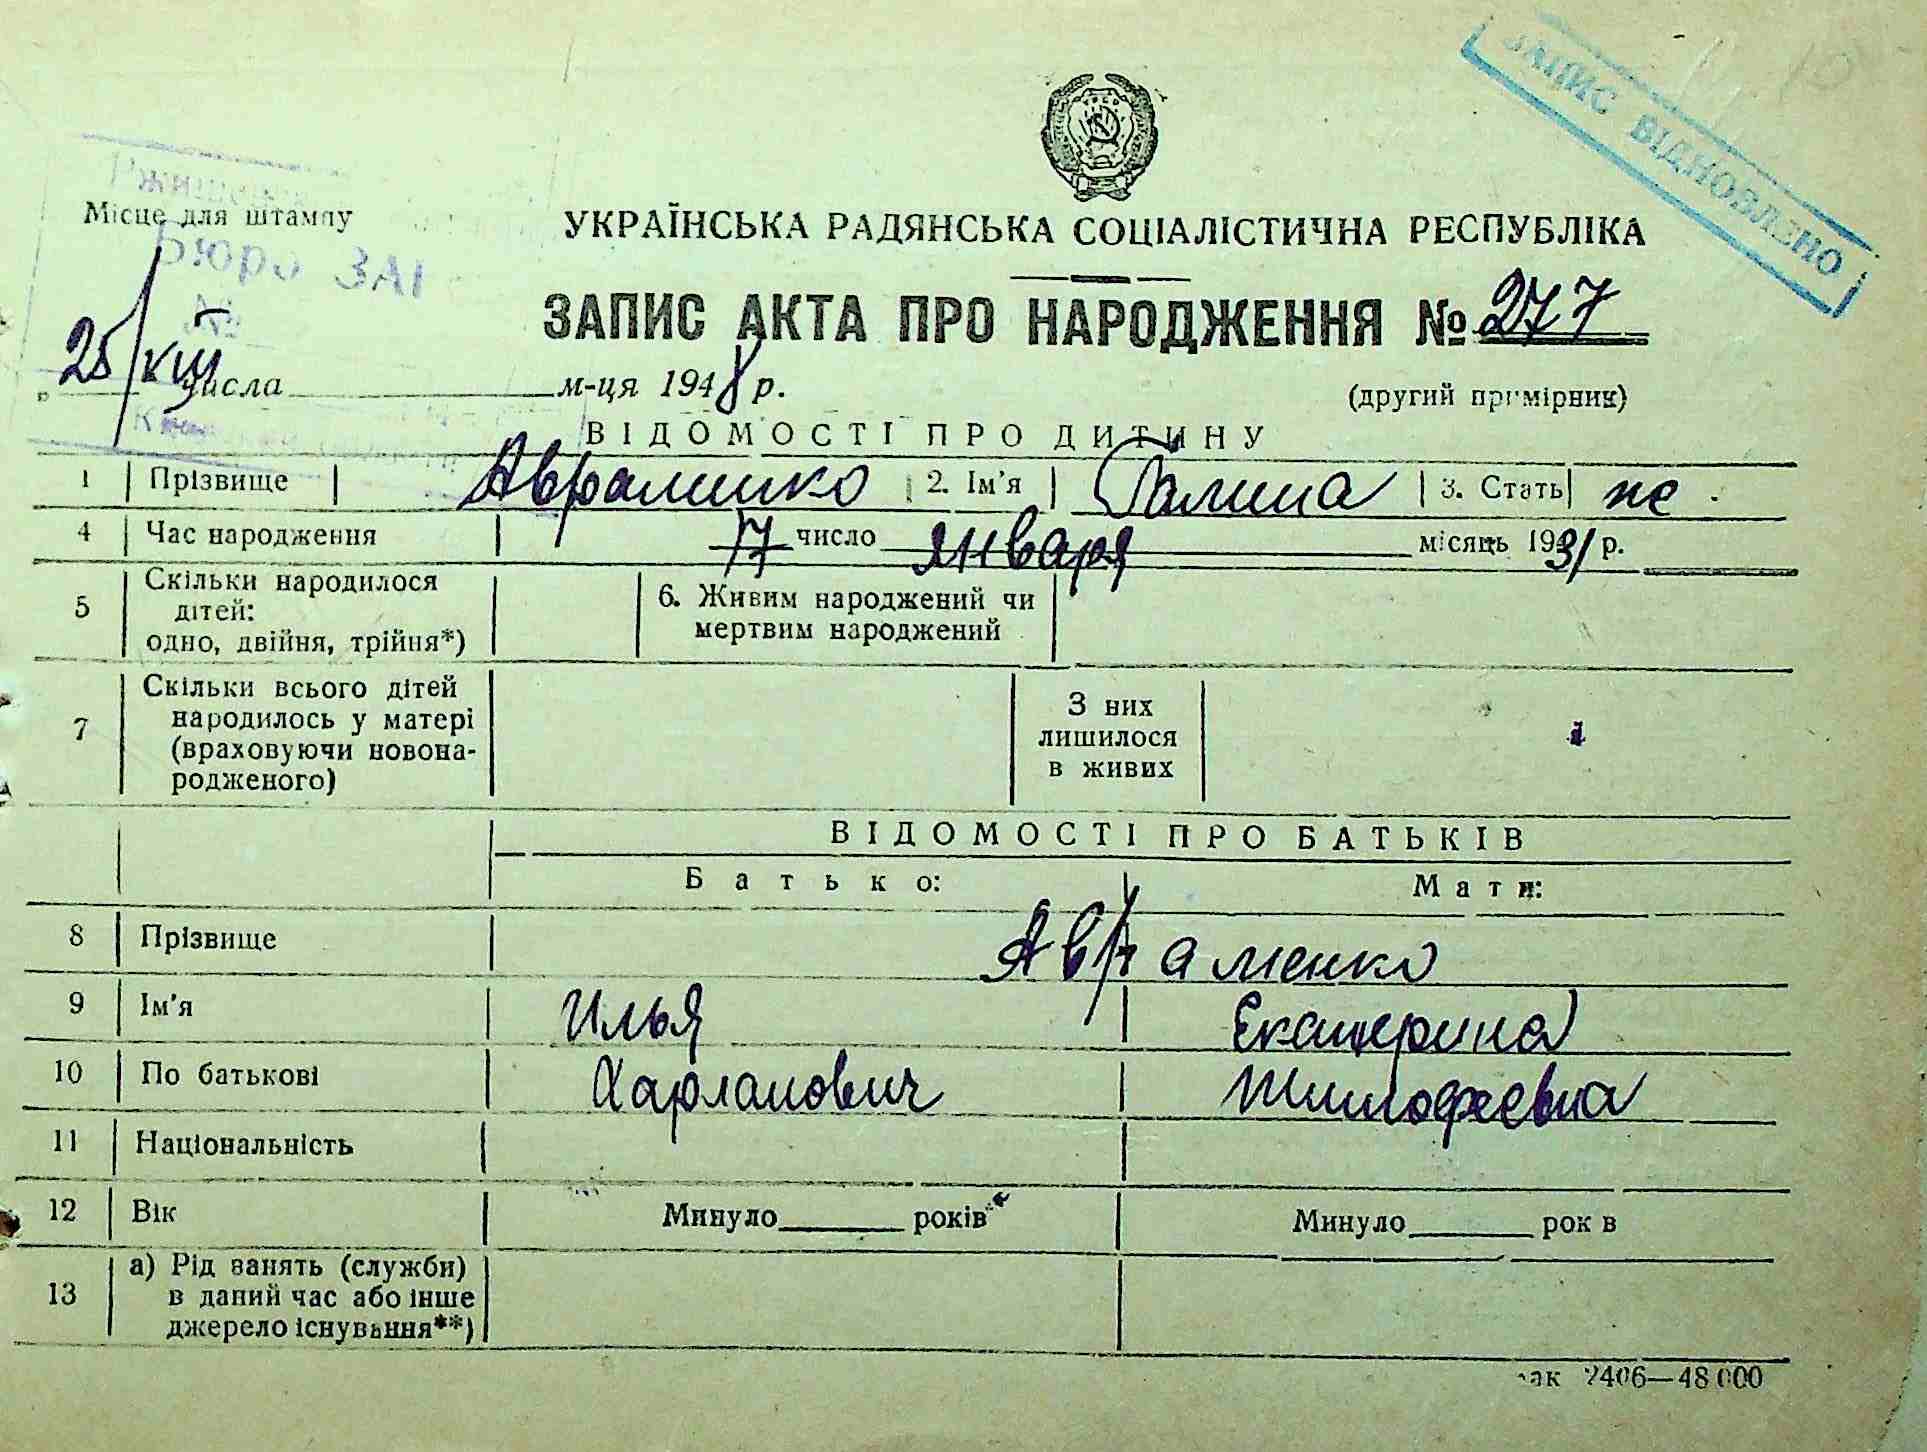 ЗАПИС ВІДНОВЛЕНО
Місце для штампу
Бюро ЗАГ
№
УКРАЇНСЬКА РАДЯНСЬКА СОЦІАЛІСТИЧНА РЕСПУБЛІКА
ЗАПИС АКТА ПРО НАРОДЖЕННЯ № 277
25/ числа м-ця 1948 р.
(другий примірник)
ВІДОМОСТІ ПРО ДИТИНУ
1 Прізвище Авраменко 2. Ім'я Галина 3. Стать же
4 Час народження 17 число января місяць 1931 р.
5 Скільки народилося дітей: одно, двійня, трійня*) 6. Живим народжений чи мертвим народжений
7 Скільки всього дітей народилось у матері (враховуючи новонародженого) З них лишилося в живих
ВІДОМОСТІ ПРО БАТЬКІВ
Батько: Мати:
8 Прізвище Авраменко
9 Ім'я Илья Екатерина
10 По батькові Харламович Тимофеевна
11 Національність
12 Вік Минуло років Минуло рок в
13 а) Рід занять (служби) в даний час або інше джерело існування**)
зак 2406—48 000